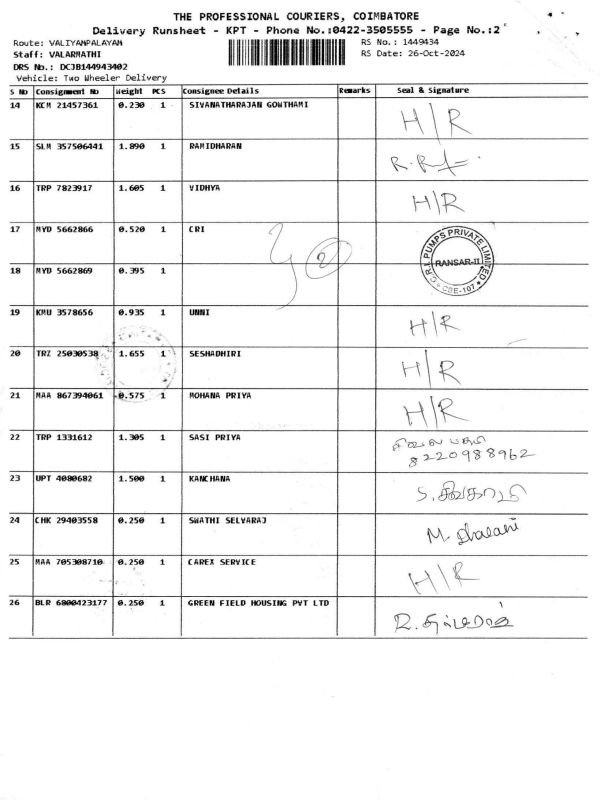 THE PROFESSIONAL COURIERS, COIMBATORE
Delivery Runsheet - KPT - Phone No.:0422-3505555 - Page No.:2
Route: VALIYAMPALAYAM
RS No.: 1449434
Staff: VALARMATHI
RS Date: 26-Oct-2024
DRS No.: DCJB144943402
Vehicle: Two Wheeler Delivery
S No Consignment No Weight PCS Consignee Details Remarks Seal & Signature
14 KCM 21457361 0.230 1 SIVANATHARAJAN GOWTHAMI H/R
15 SLM 357506441 1.890 1 RAMIDHARAN
16 TRP 7823917 1.605 1 VIDHYA H/R
17 MYD 5662866 0.520 1 CRI
2
R.I. PUMPS PRIVATE LIMITED
RANSAR-II
CBE-107
18 MYD 5662869 0.395 1
19 KMU 3578656 0.935 1 UNNI H/R
20 TRZ 25030538 1.655 1 SESHADHIRI H/R
21 MAA 867394061 0.575 1 MOHANA PRIYA H/R
22 TRP 1331612 1.305 1 SASI PRIYA
8220988962
23 UPT 4080682 1.500 1 KANCHANA
24 CHK 29403558 0.250 1 SWATHI SELVARAJ
25 MAA 705308710 0.250 1 CAREX SERVICE H/R
26 BLR 6800423177 0.250 1 GREEN FIELD HOUSING PVT LTD